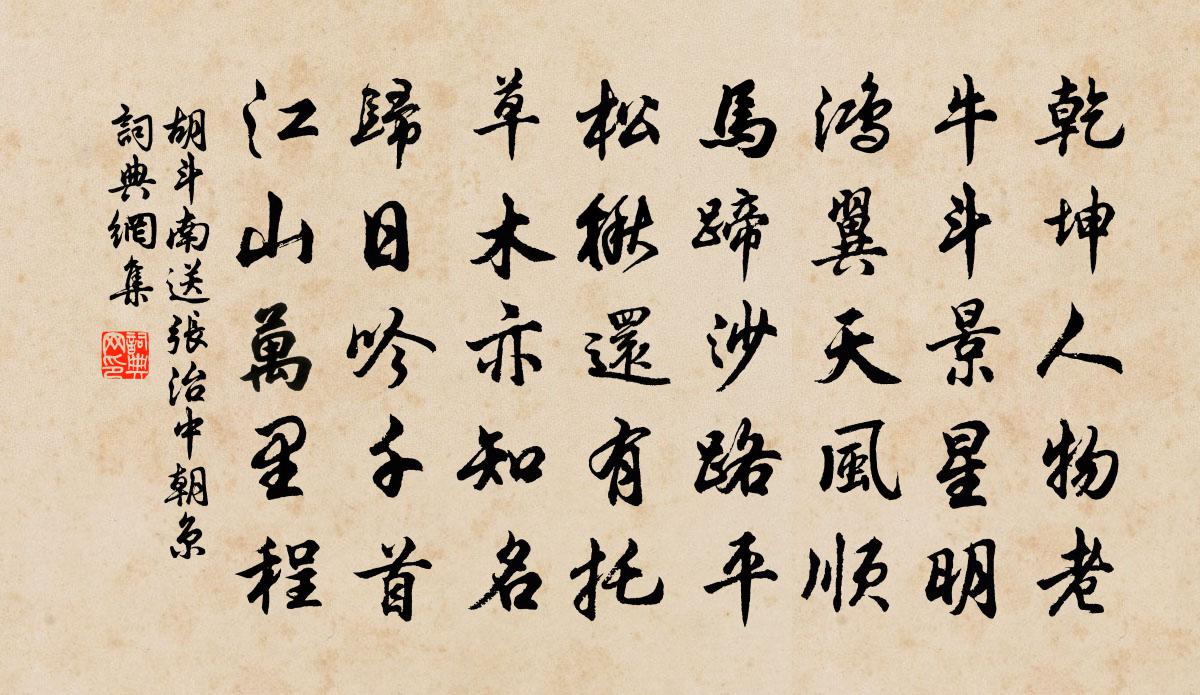 乾坤人物老
牛斗景星明
鴻翼天風順
馬蹄沙路平
松楸還有托
草木亦知名
歸日吟千首
江山萬里程
胡斗南送張治中朝京
詞典網集
詞典網印